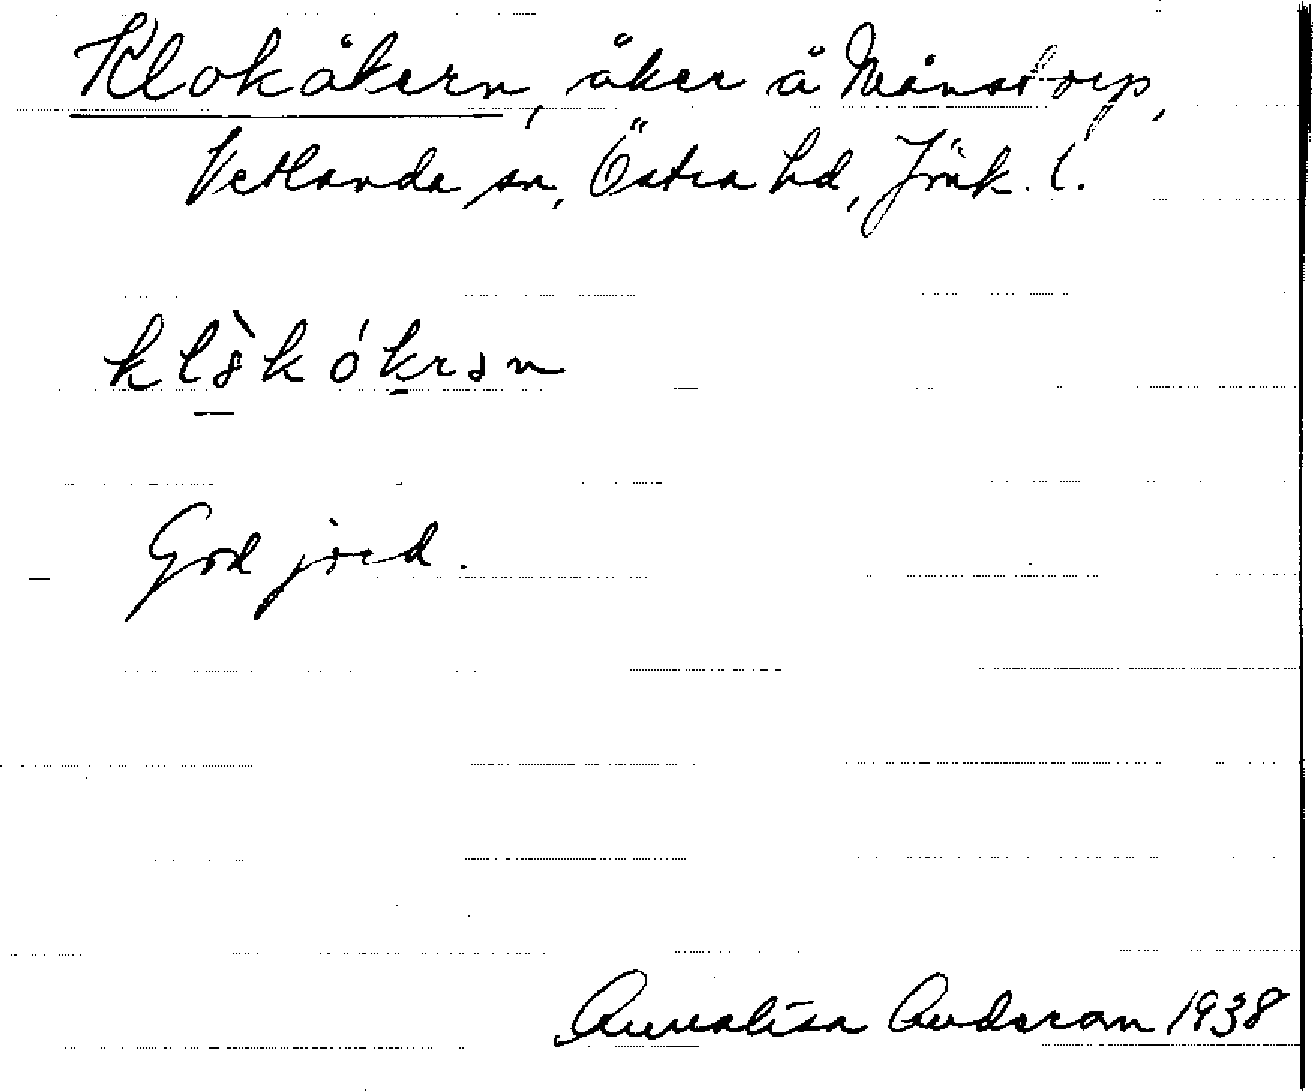 Klokåkern, åker å Månstorp,
Vetlanda sn, Östra hd, Jönk. l.
God jord.
Annalisa Anderson 1938